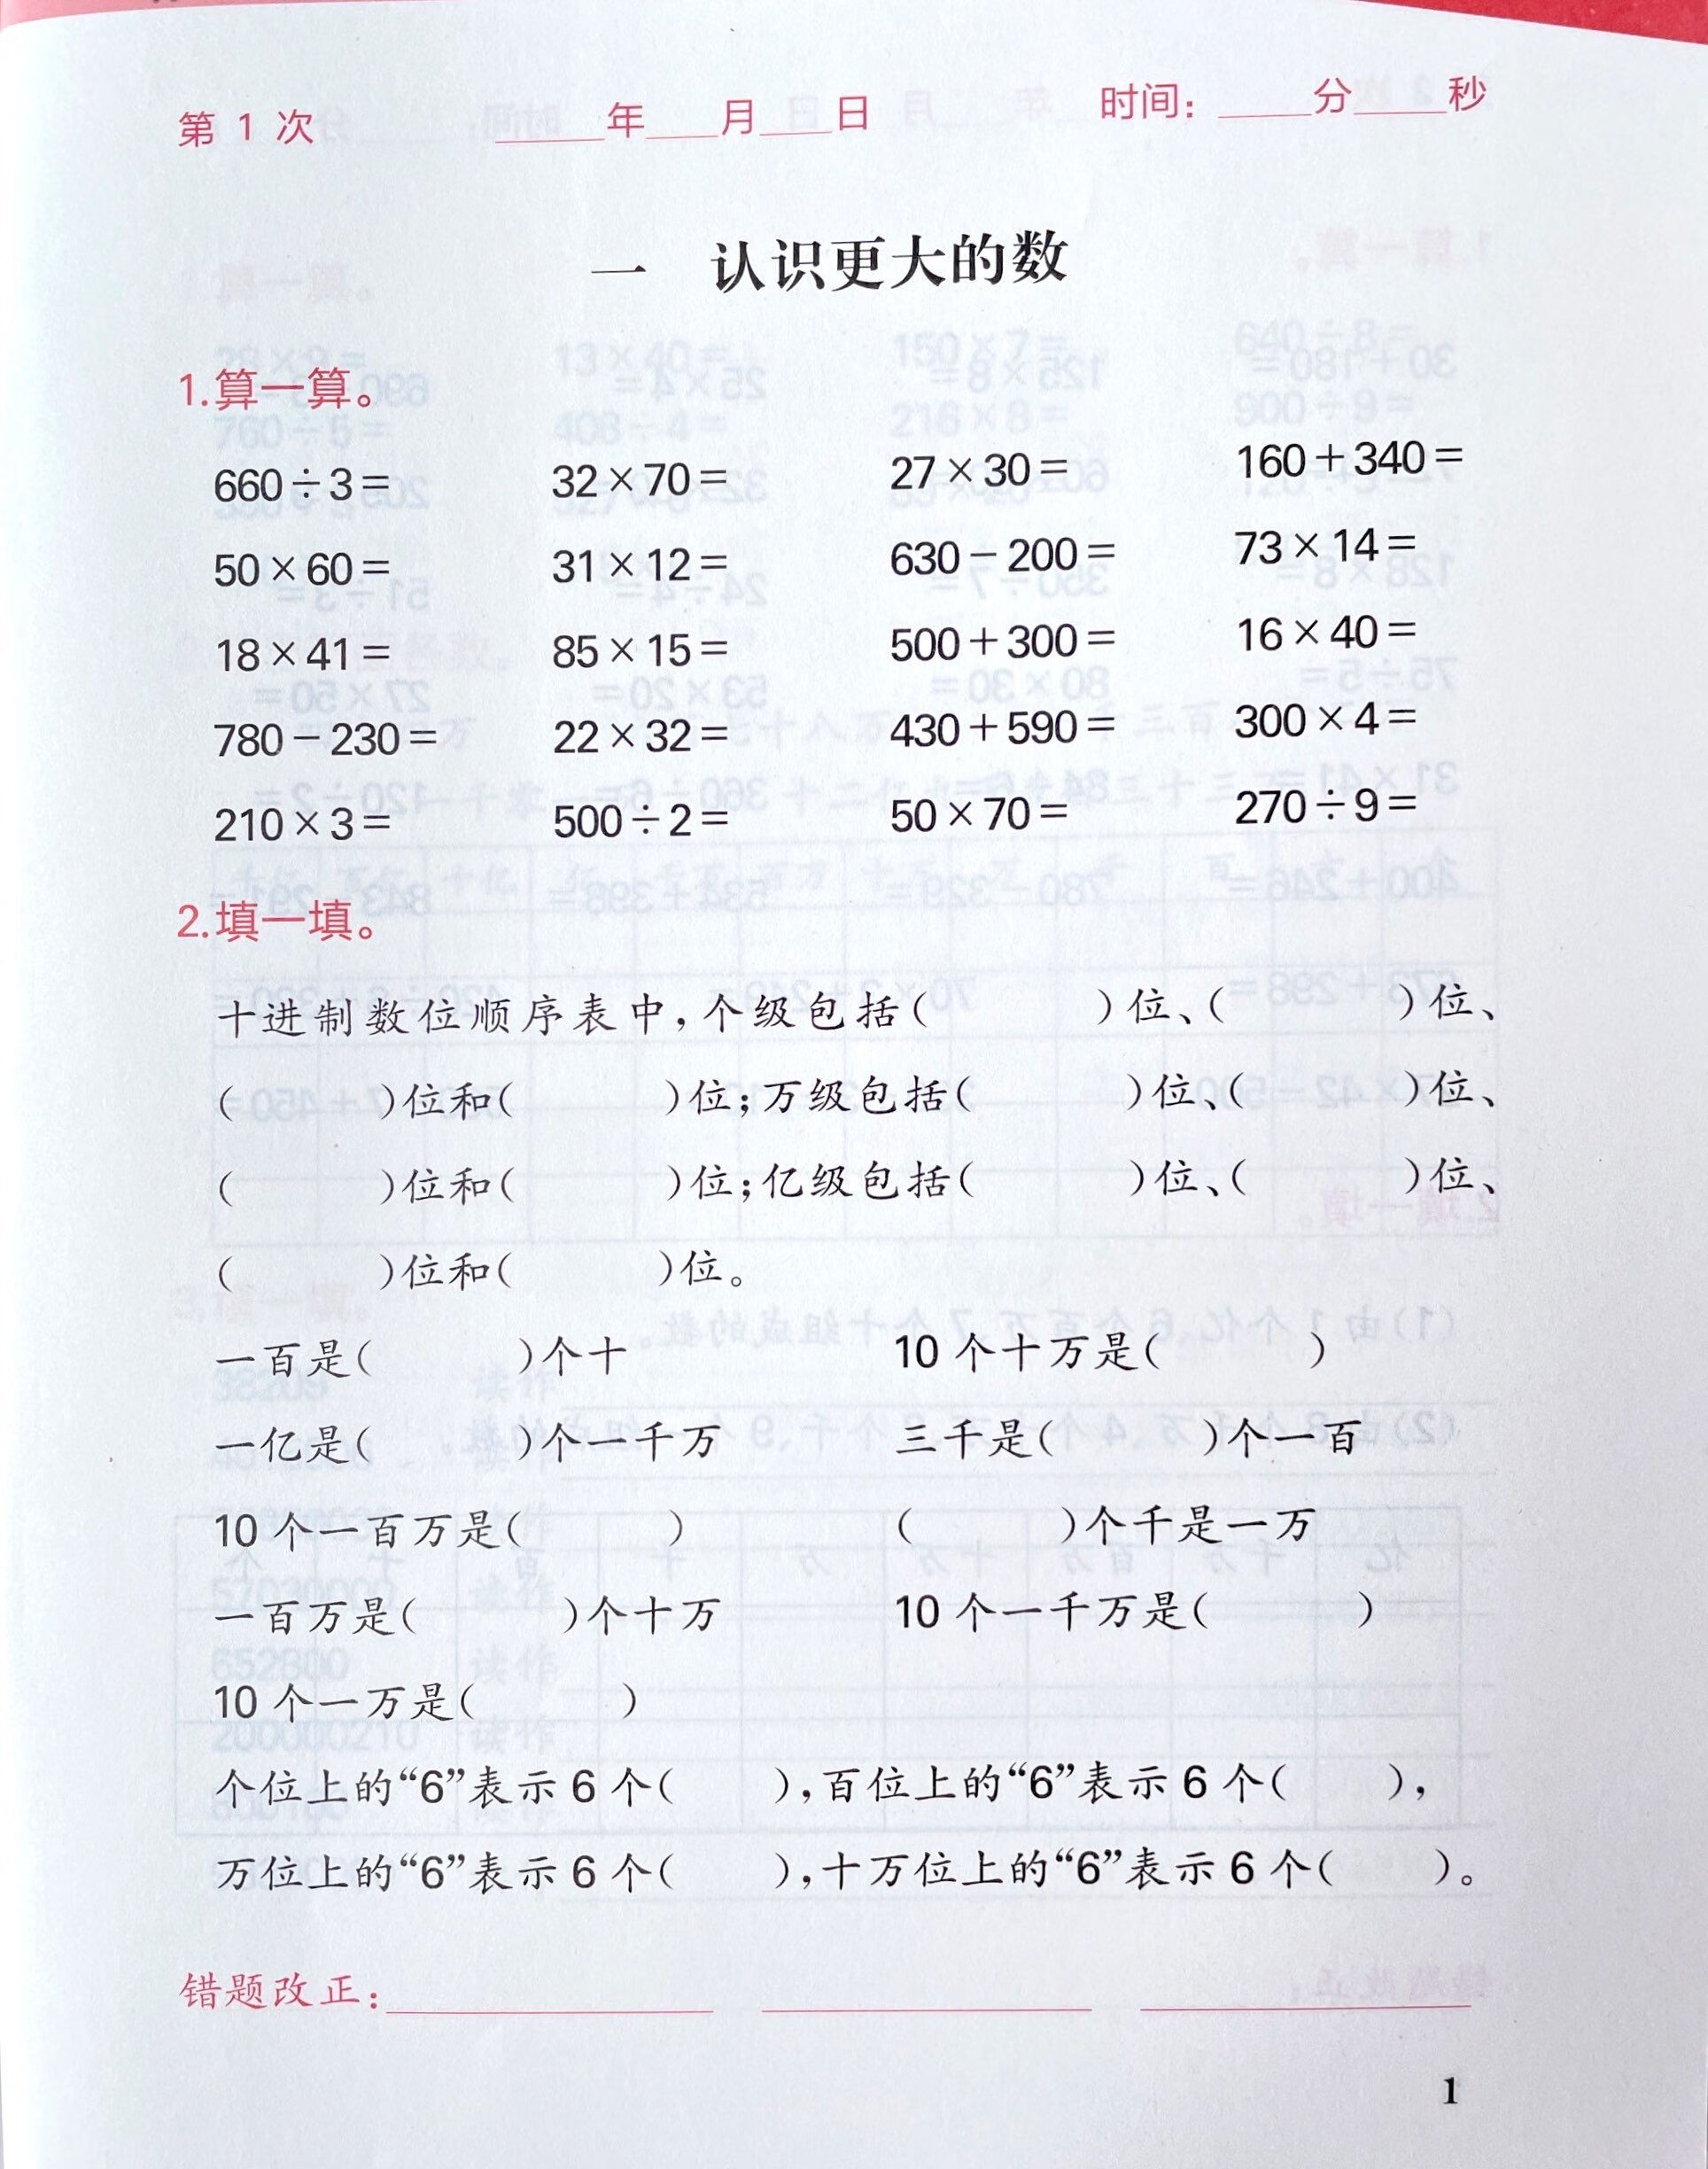 第 1 次 ____年___月___日 时间：____分____秒
一 认识更大的数
1.算一算。
660÷3= 32×70= 27×30= 160+340=
50×60= 31×12= 630-200= 73×14=
18×41= 85×15= 500+300= 16×40=
780-230= 22×32= 430+590= 300×4=
210×3= 500÷2= 50×70= 270÷9=
2.填一填。
十进制数位顺序表中，个级包括( )位、( )位、
( )位和( )位；万级包括( )位、( )位、
( )位和( )位；亿级包括( )位、( )位、
( )位和( )位。
一百是( )个十 10 个十万是( )
一亿是( )个一千万 三千是( )个一百
10 个一百万是( ) ( )个千是一万
一百万是( )个十万 10 个一千万是( )
10 个一万是( )
个位上的“6”表示 6 个( )，百位上的“6”表示 6 个( )，
万位上的“6”表示 6 个( )，十万位上的“6”表示 6 个( )。
错题改正：__________ __________ __________
1